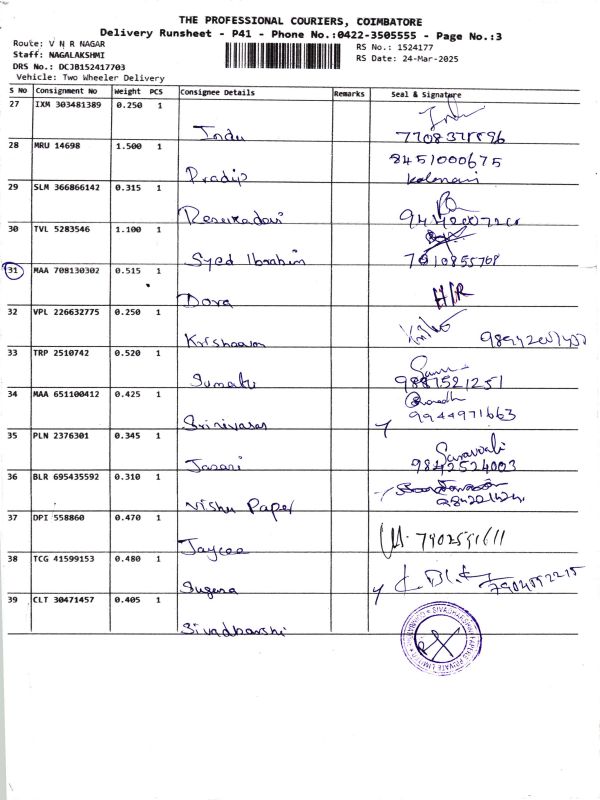 THE PROFESSIONAL COURIERS, COIMBATORE
Delivery Runsheet - P41 - Phone No.:0422-3505555 - Page No.:3
Route: V N R NAGAR
Staff: NAGALAKSHMI
DRS No.: DCJB152417703
Vehicle: Two Wheeler Delivery
RS No.: 1524177
RS Date: 24-Mar-2025
S No Consignment No Weight PCS Consignee Details Remarks Seal & Signature
27 IXM 303481389 0.250 1
Indu
28 MRU 14698 1.500 1 8451000675
Pradip
29 SLM 366866142 0.315 1
30 TVL 5283546 1.100 1
Syed Ibrahim
31 MAA 708130302 0.515 1 H/R
Dora
32 VPL 226632775 0.250 1
33 TRP 2510742 0.520 1
9887521251
34 MAA 651100412 0.425 1
Srinivasan 9944971663
35 PLN 2376301 0.345 1
9842524003
36 BLR 695435592 0.310 1
Vishu Paper
37 DPI 558860 0.470 1
Jaycee
38 TCG 41599153 0.480 1
Suguna
39 CLT 30471457 0.405 1
Sivadharshi